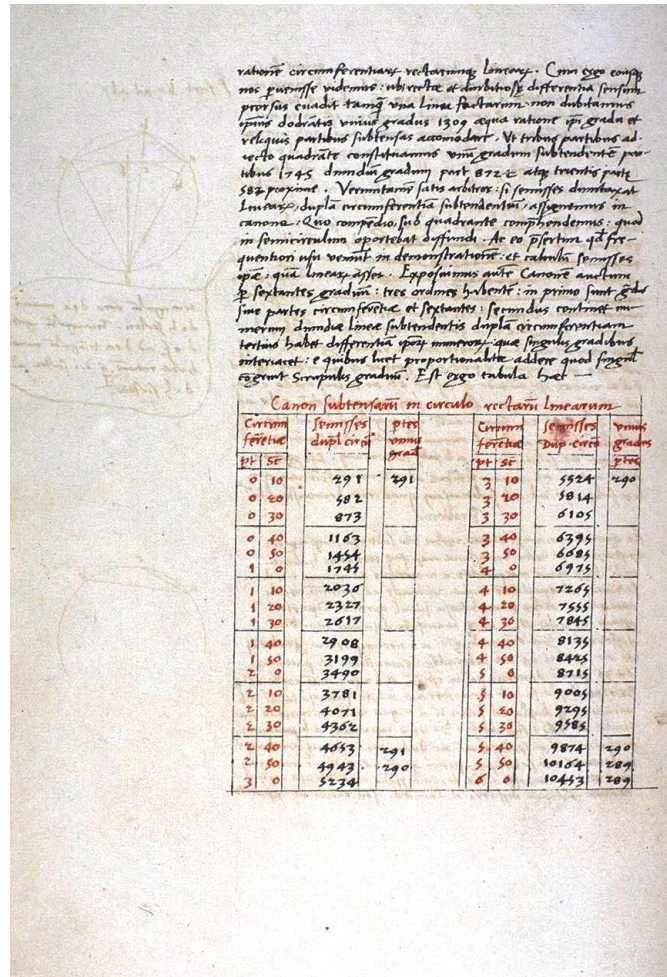 rationem circumferentiarum rectarumque linearum . Cum ergo eousque
nos pervenisse videmus : ubi rectae et ambientis differentia sensum
prorsus evadit tamquam una linea factarum non dubitamus
ipsius dodrantis unius gradus 1309 aequa ratione ipsi gradui et
reliquis partibus subtensas accomodare . Ut tribus partibus ad-
iecto quadrante constituamus unum gradum subtendentem par-
tibus 1745 dimidium gradum part 872 2 atque trientis parte
582 proxime . Veruntamen satis arbitror : si semisses dumtaxat
linearum, dupla circumferentia subtendentium, assignemus in
canone : Quo compendio, sub quadrante comprehendemus : quod
in semicirculum oportebat diffundi . Ac eo praesertim quod fre-
quentiori usu veniunt in demonstrationem : et calculum semisses
ipsae : quam linearum asses . Exposuimus autem Canonem auctum
per sextantes graduum : tres ordines habentem : in primo sunt gradus
sive partes circumferentiae et sextantes : secundus continet nu-
merum dimidiae lineae subtendentis duplam circumferentiam
tertius habet differentiam ipsorum numerorum quae singulis gradibus
interiacet : e quibus licet proportionaliter addere quod singulis
congruit scrupulis graduum . Est ergo tabula haec —
Canon subtensarum in circulo rectarum linearum
Circum ferentiae | Semisses dupl circum | ptes unius grad | Circum ferentiae | Semisses Dup circu | unius grades
pt sc | pt sc | ptes
0 10 291 291 3 10 5524 290
0 20 582 3 20 5814
0 30 873 3 30 6105
0 40 1163 3 40 6395
0 50 1454 3 50 6685
1 0 1745 4 0 6975
1 10 2036 4 10 7265
1 20 2327 4 20 7555
1 30 2617 4 30 7845
1 40 2908 4 40 8135
1 50 3199 4 50 8425
2 0 3490 5 0 8715
2 10 3781 5 10 9005
2 20 4071 5 20 9295
2 30 4362 5 30 9585
2 40 4653 291 5 40 9874 290
2 50 4943 290 5 50 10164 289
3 0 5234 6 0 10453 289